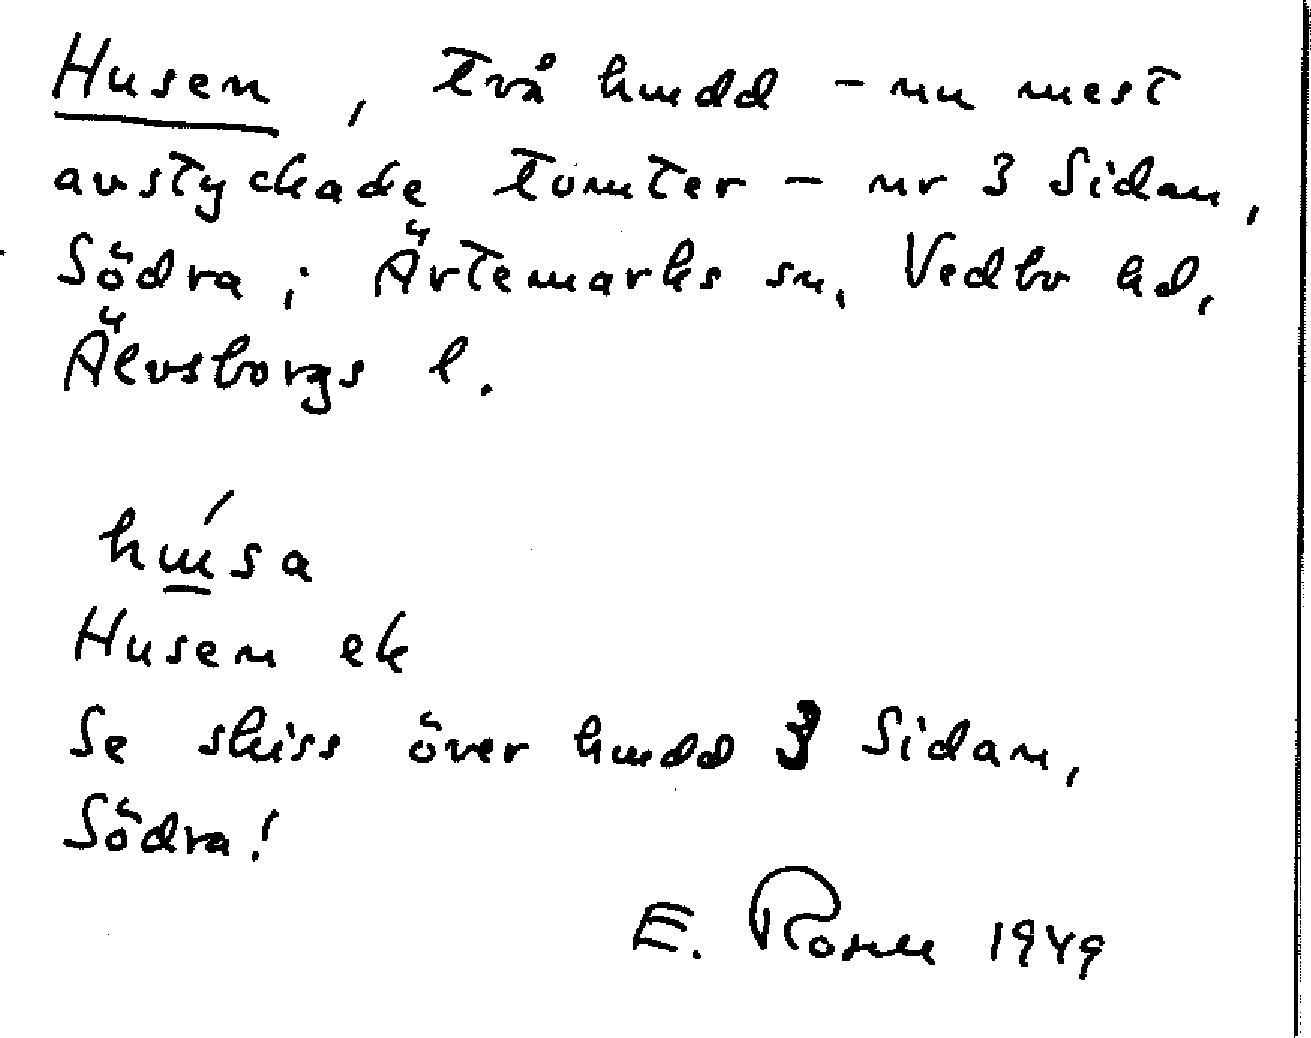 Husen, två hmdd - nu mest
avstyckade tomter - nr 3 Sidan,
Södra i Ärtemarks sn, Vedbo hd,
Älvsborgs l.
Husen ek
Se skiss över hmdd 3 Sidan,
Södra!
E. 1949